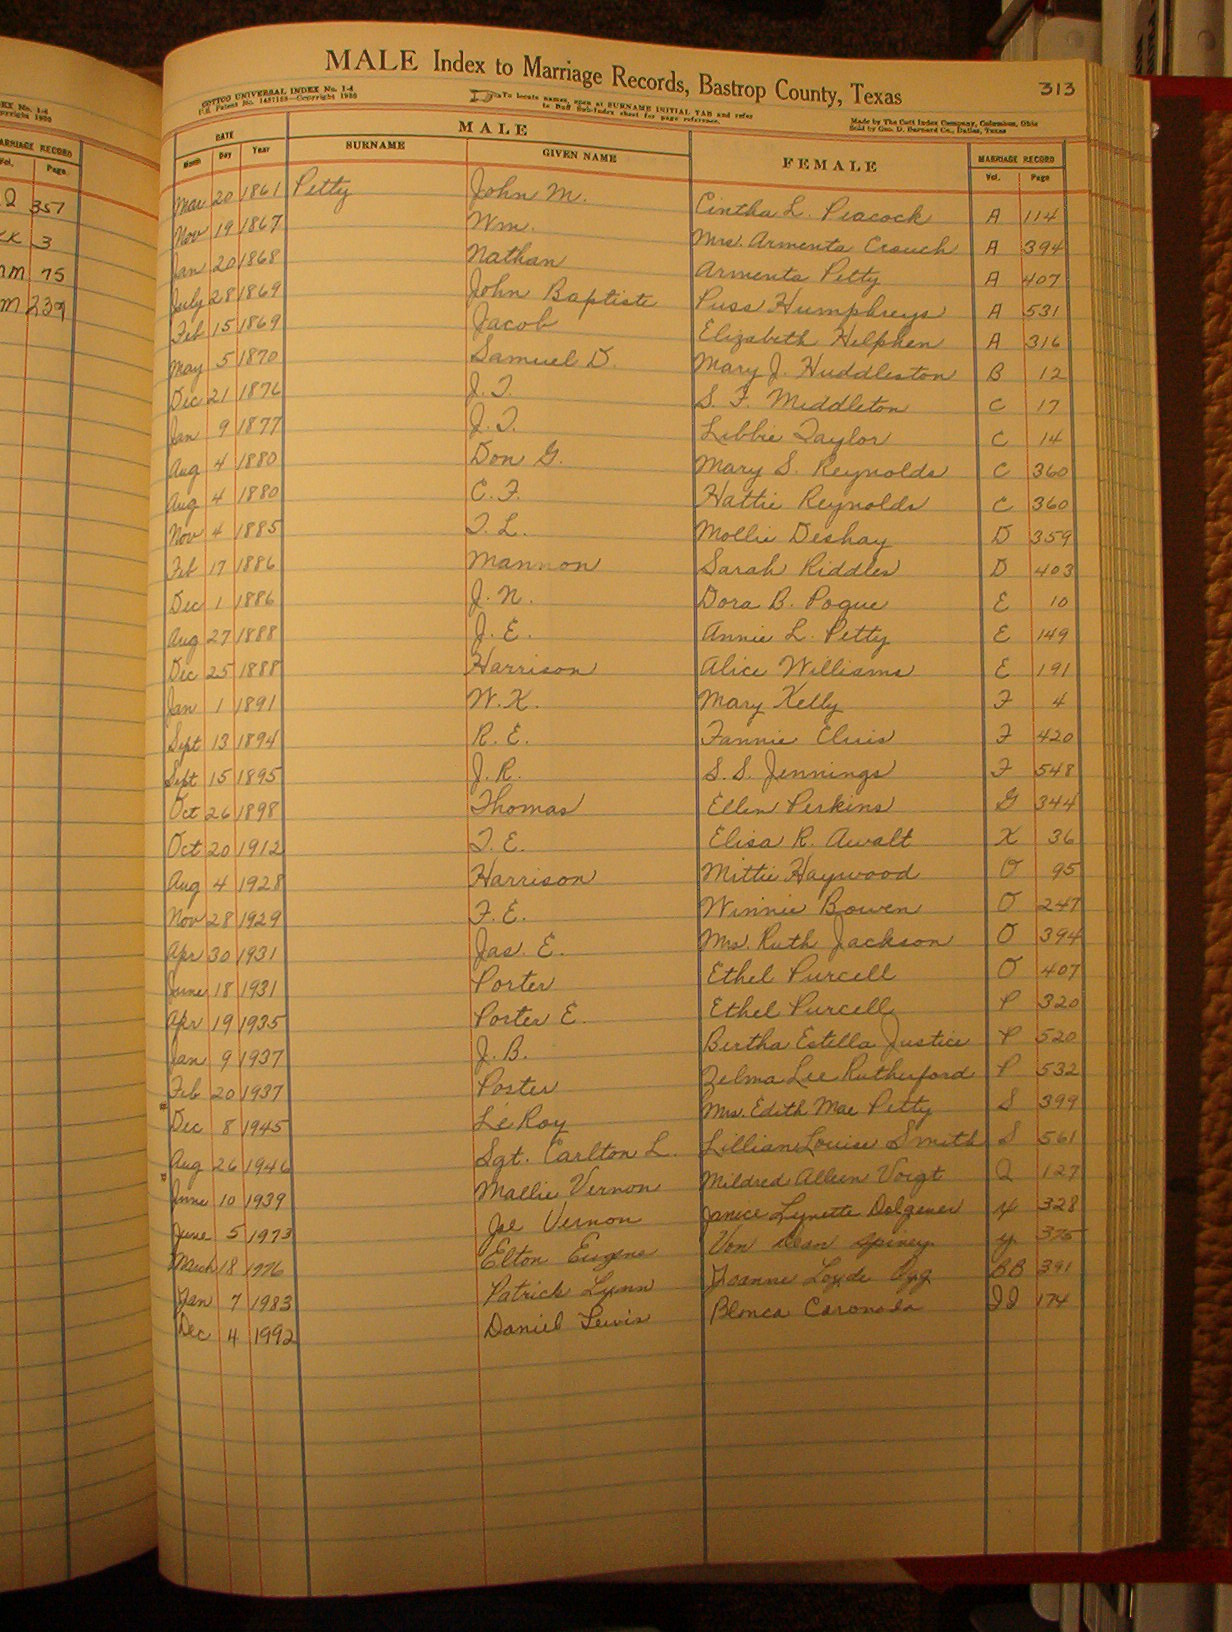 MALE Index to Marriage Records, Bastrop County, Texas 313
COTTCO UNIVERSAL INDEX No. 1-4
U.S. Patent No. 1457165—Copyright 1930
To locate names, open at SURNAME INITIAL TAB and refer
to Buff Sub-Index sheet for page reference.
Made by The Cott Index Company, Columbus, Ohio
Sold by Geo. D. Barnard Co., Dallas, Texas
DATE MALE FEMALE MARRIAGE RECORD
Month Day Year SURNAME GIVEN NAME Vol. Page
Mar 20 1861 Petty John M. Cintha L. Peacock A 114
Nov 19 1867 Wm. Mrs. Armenta Crouch A 394
Jan 20 1868 Nathan Armenta Petty A 407
July 28 1869 John Baptiste Puss Humphreys A 531
Feb 15 1869 Jacob Elizabeth Helphen A 316
May 5 1870 Samuel D. Mary J. Huddleston B 12
Dec 21 1876 J.T. S. F. Middleton C 17
Jan 9 1877 J.T. Libbie Taylor C 14
Aug 4 1880 Don G. Mary S. Reynolds C 360
Aug 4 1880 C. F. Hattie Reynolds C 360
Nov 4 1885 T. L. Mollie Deshay D 359
Feb 17 1886 Mannon Sarah Riddles D 403
Dec 1 1886 J. N. Dora B. Pogue E 10
Aug 27 1888 J. E. Annie L. Petty E 149
Dec 25 1888 Harrison Alice Williams E 191
Jan 1 1891 W. K. Mary Kelly F 4
Sept 13 1894 R. E. Fannie F 420
Sept 15 1895 J. R. S. S. Jennings F 548
Oct 26 1898 Thomas Ellen Perkins G 344
Oct 20 1912 T. E. Elisa R. Awalt K 36
Aug 4 1928 Harrison Mittie Haywood O 95
Nov 28 1929 F. E. Winnie Bowen O 247
Apr 30 1931 Jas. E. Mrs. Ruth Jackson O 394
June 18 1931 Porter Ethel Purcell O 407
Apr 19 1935 Porter E. Ethel Purcell P 320
Jan 9 1937 J. B. Bertha Estella Justice P 520
Feb 20 1937 Porter Zelma Lee Rutherford P 532
Dec 8 1945 LeRoy Mrs. Edith Mae Petty S 399
Aug 26 1946 Sgt. Carlton L. Lillian Louise Smith S 561
June 10 1939 Mallie Vernon Mildred Alleen Voigt Q 127
June 5 1973 Joe Vernon Janice Lynette Dolgener 328
March 18 1976 Elton Eugene Von Dean Spiney 375
Jan 7 1983 Patrick Lynn Joanne BB 391
Dec 4 1992 Daniel Lewis Blanca Coronada 174
MARRIAGE RECORD
Vol. Page
Q 357
3
75